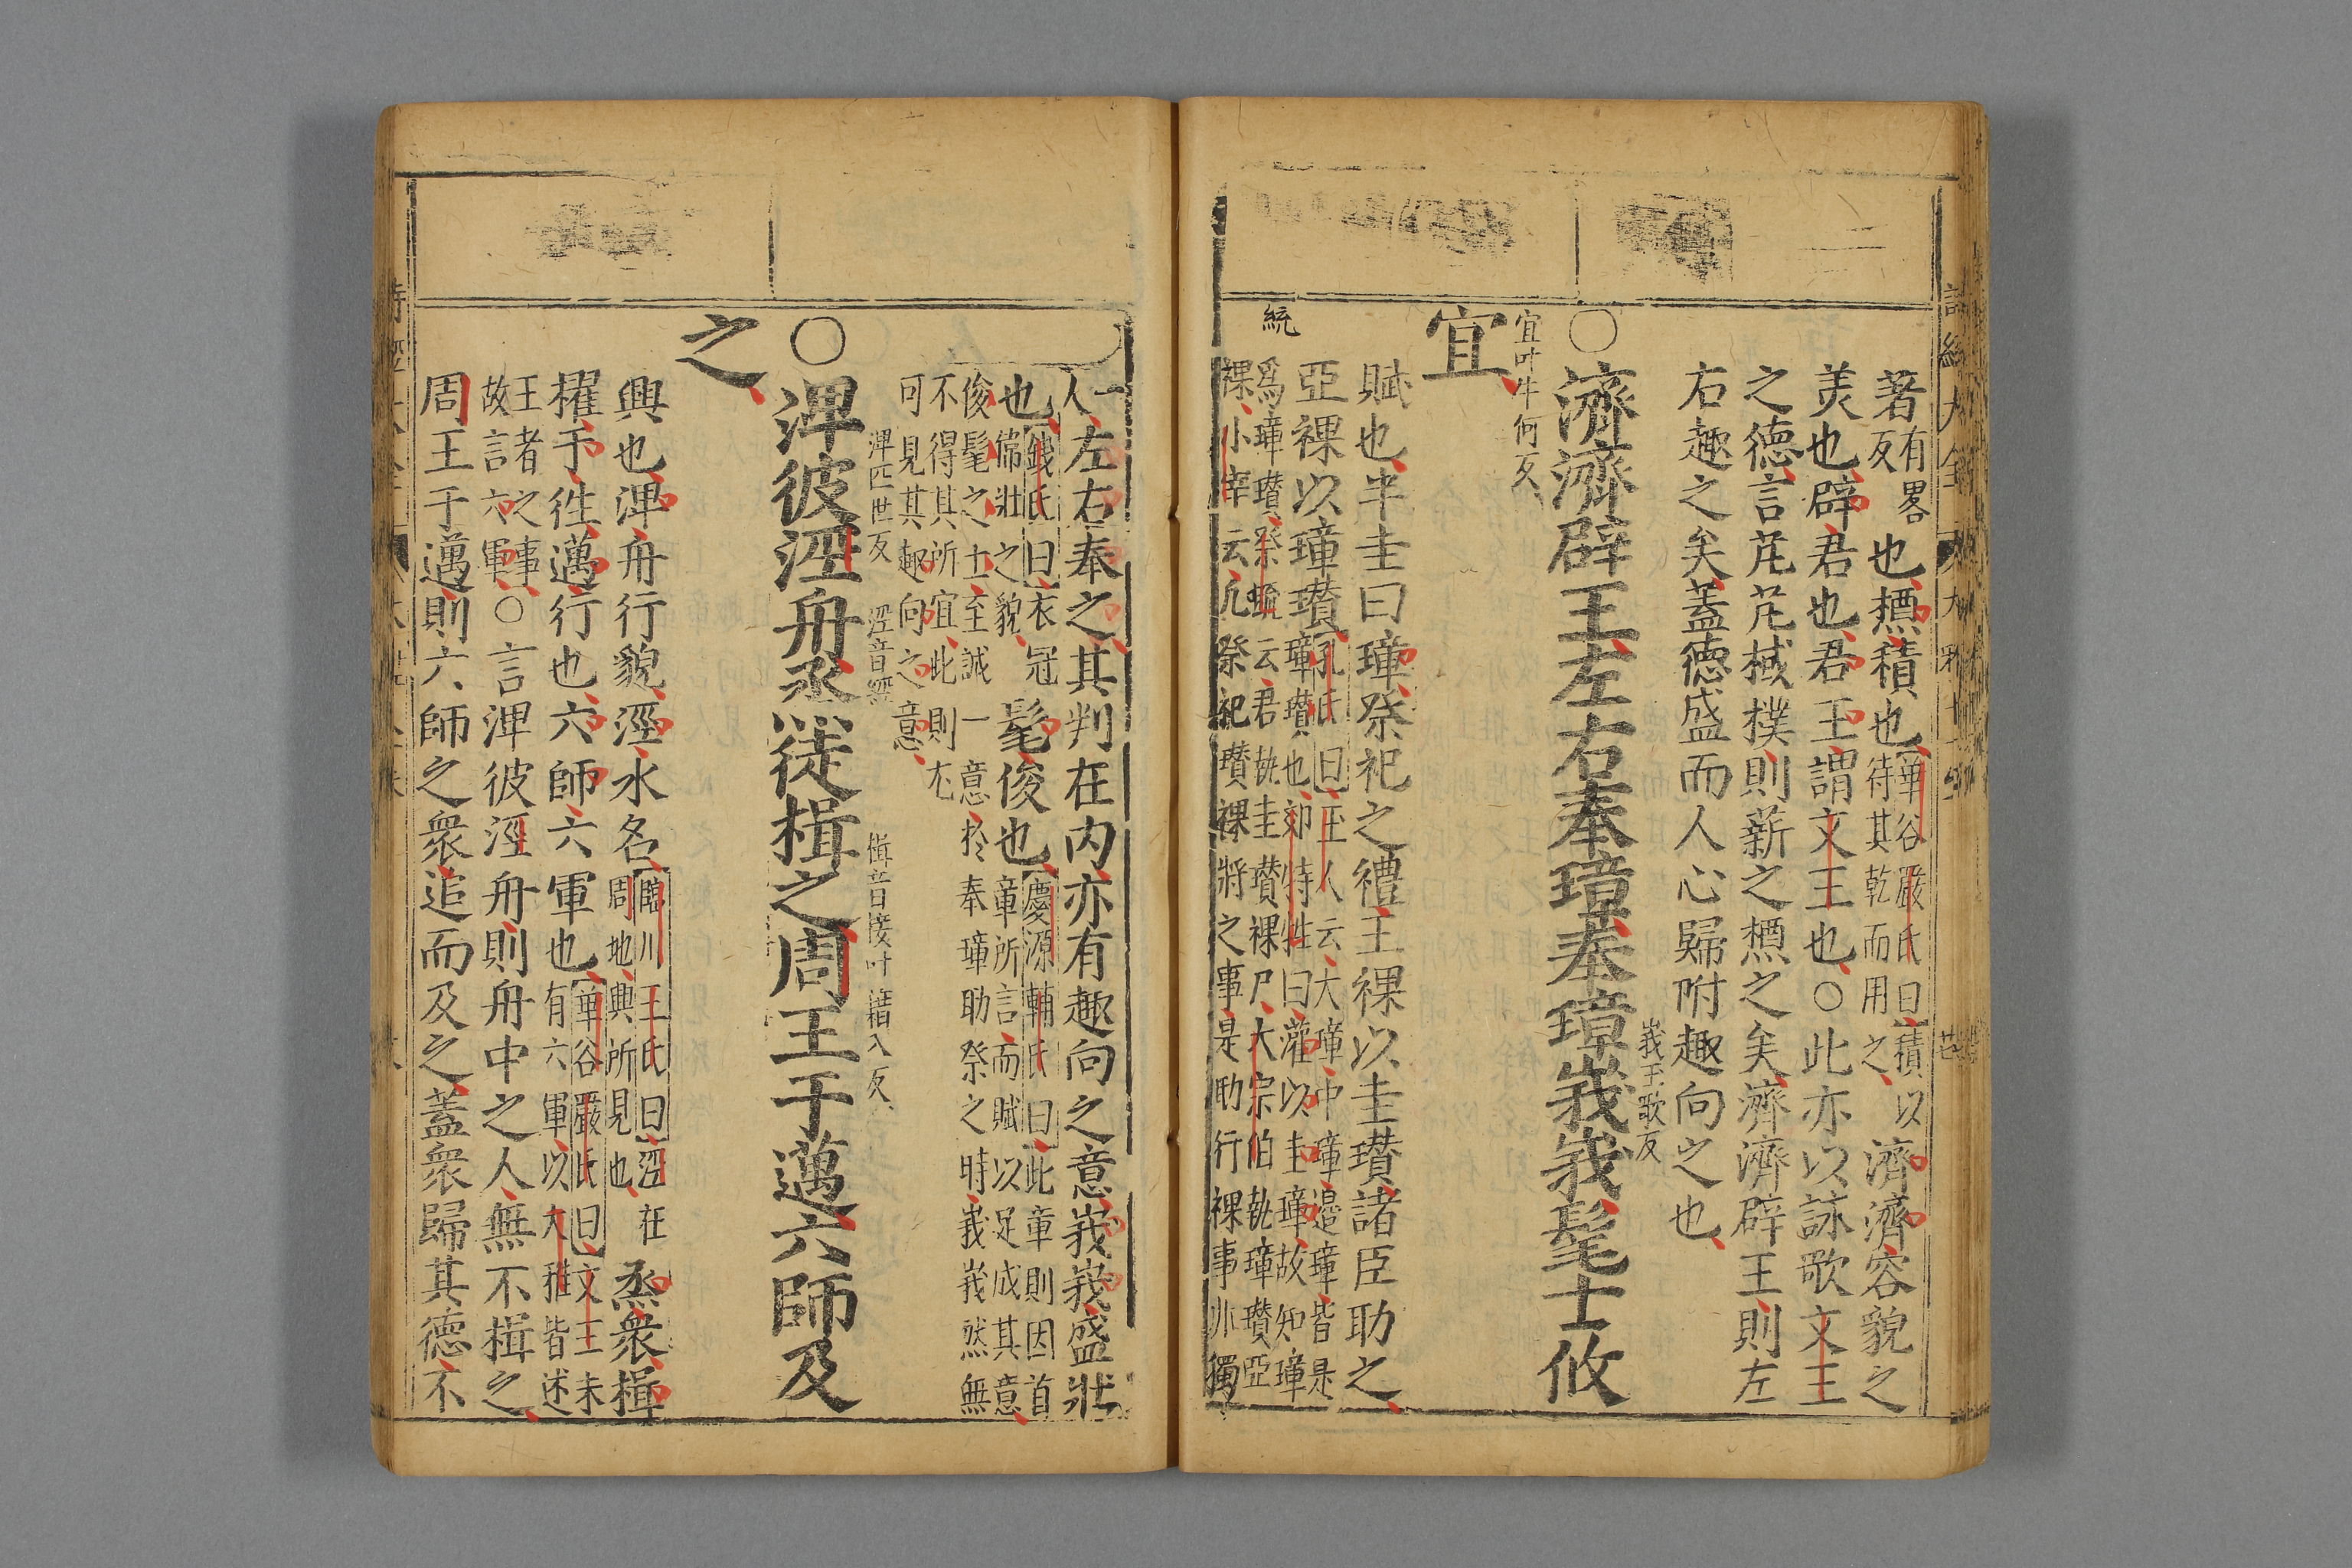 著有畧反也槱積也華谷嚴氏曰積以待其乾而用之濟濟容貌之
美也辟君也君王謂文王也○此亦以詠歌文王
之德言芃芃棫樸則薪之槱之矣濟濟辟王則左
右趣之矣蓋德盛而人心歸附趣向之也
峩五歌反
○濟濟辟王左右奉璋奉璋峩峩髦士攸
宜叶牛何反
宜
賦也半圭曰璋祭祀之禮王祼以圭瓚諸臣助之
亞祼以璋瓚孔氏曰玉人云大璋中璋邊璋皆是璋瓚也郊特牲曰灌以圭璋故知璋
統
爲璋瓚祭統云君執圭瓚祼尸大宗伯執璋瓚亞祼小宰云凡祭祀瓚祼將之事是助行祼事非獨
一人
左右奉之其判在內亦有趣向之意峩峩盛壯
也錢氏曰衣冠偉壯之貌髦俊也慶源輔氏曰此章則因首章所言而賦以足成其意
俊髦之士至誠一意於奉璋助祭之時峩峩然無不得其所宜此則尤
可見其趣向之意
淠匹世反 涇音經 楫音接叶籍入反
○淠彼涇舟烝徒楫之周王于邁六師及
之
興也淠舟行貌涇水名臨川王氏曰涇在周地興所見也烝衆楫
櫂于徃邁行也六師六軍也華谷嚴氏曰文王未有六軍以大雅皆述
王者之事故言六軍○言淠彼涇舟則舟中之人無不楫之
周王于邁則六師之衆追而及之蓋衆歸其德不